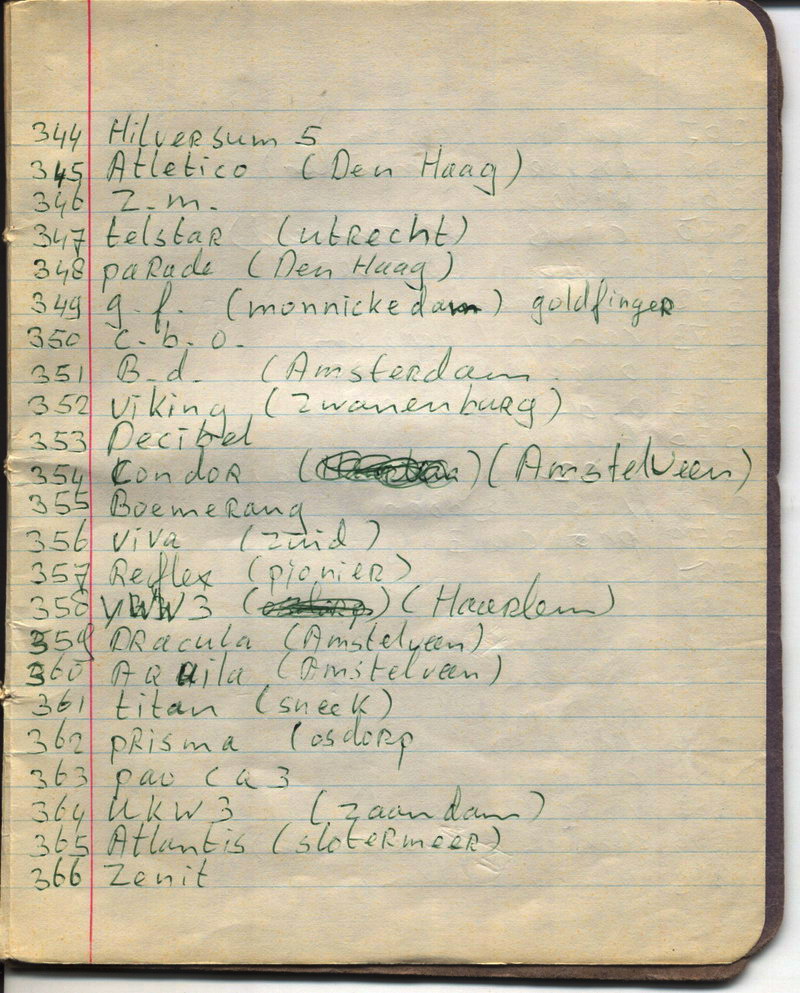 344 Hilversum 5
345 Atletico (Den Haag)
346 Z.m.
347 telstar (utrecht)
348 parade (Den Haag)
349 g.f. (monnickedam) goldfinger
350 C.b.o.
351 B.d. (Amsterdam
352 Viking (Zwanenburg)
353 Decibel
354 Condor ( ) (Amstelveen)
355 Boemerang
356 Viva (Zuid)
357 Reflex (pionier)
358 3 ( ) (Haarlem)
359 Dracula (Amstelveen)
360 Aquila (Amstelveen)
361 titan (sneek)
362 prisma (osdorp
363 3
364 UKW3 (Zaandam)
365 Atlantis (slotermeer)
366 Zenit